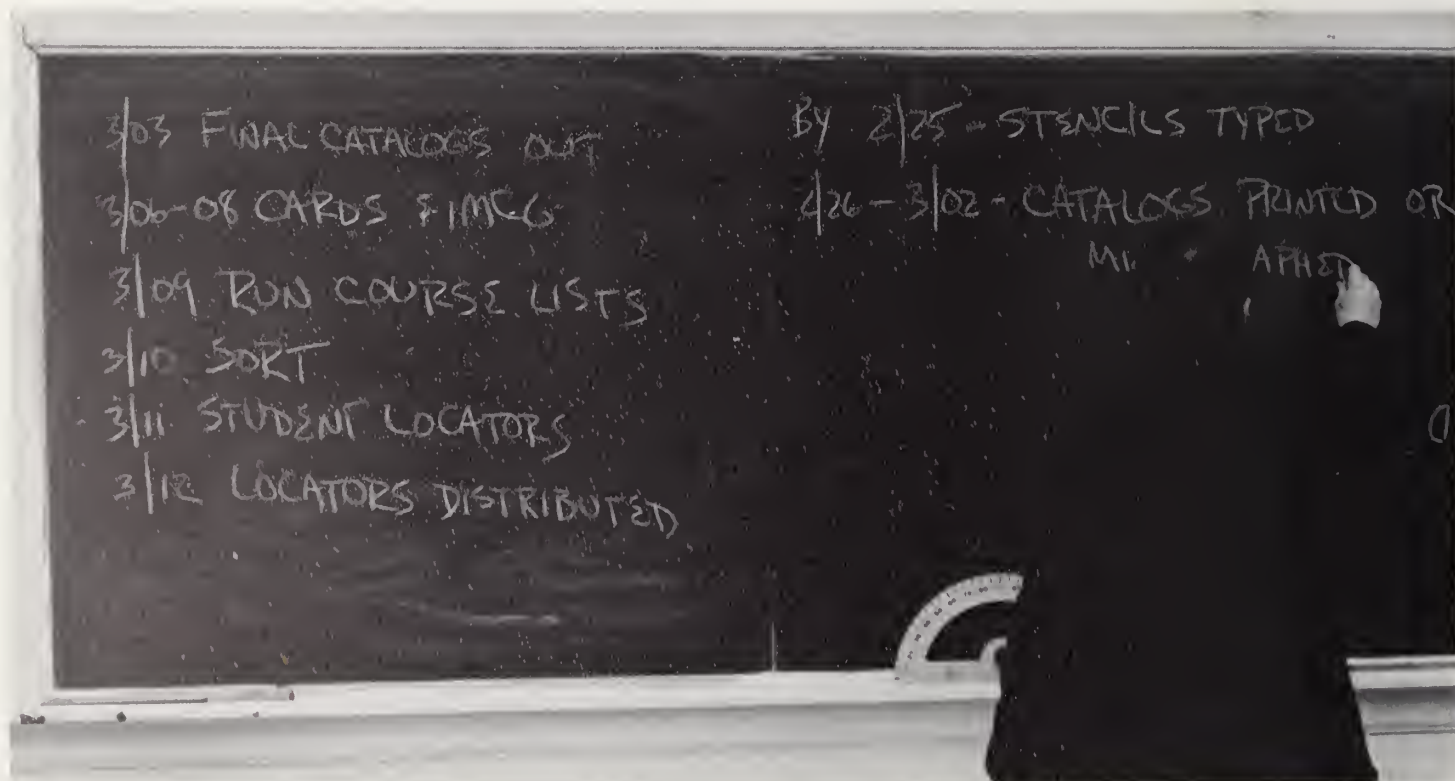 3/03 FINAL CATALOGS OUT
3/06-08 CARDS & IMCG
3/09 RUN COURSE LISTS
3/10 SORT
3/11 STUDENT LOCATORS
3/12 LOCATORS DISTRIBUTED
BY 2/25 - STENCILS TYPED
2/26 - 3/02 - CATALOGS PRINTED OR